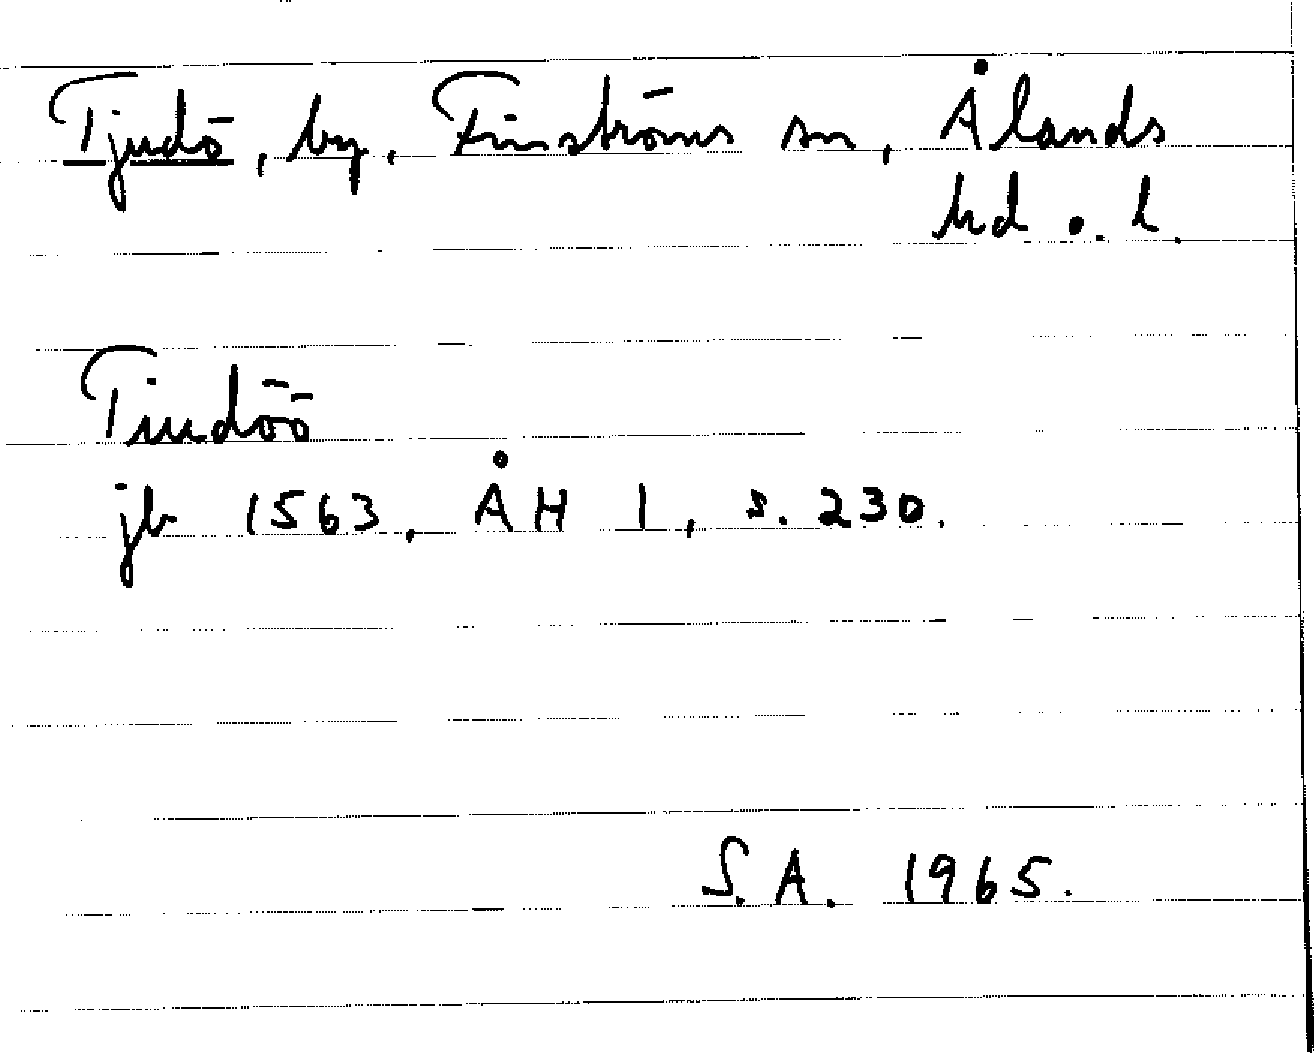 Tjudö, by, Finströms sn, Ålands
hd o. l.
Tiudöö
jb 1563, ÅH I, s. 230.
S.A. 1965.